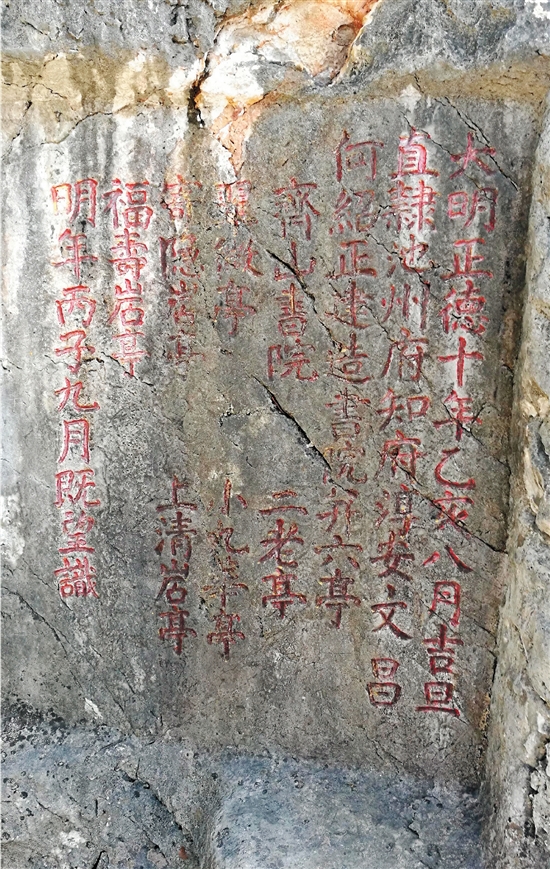 大明正德十年乙亥八月吉旦
直隸池州府知府淳安文昌
何紹正建造書院并六亭
齊山書院 二老亭
翠微亭 小九亭
寄隱岩亭 上清岩亭
福壽岩亭
明年丙子九月既望識